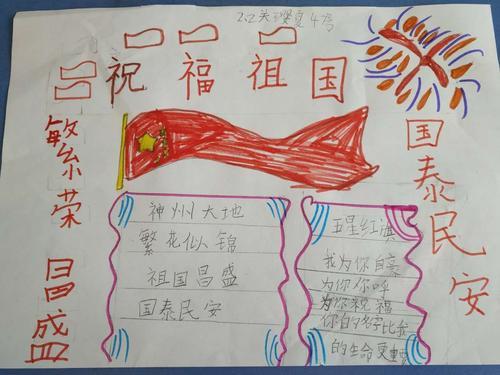 祝福祖国
繁荣昌盛
国泰民安
神州大地
繁花似锦
祖国昌盛
国泰民安
五星红旗
我为你自豪
为你你呼
为你祝福
你的名字比我
的生命更重